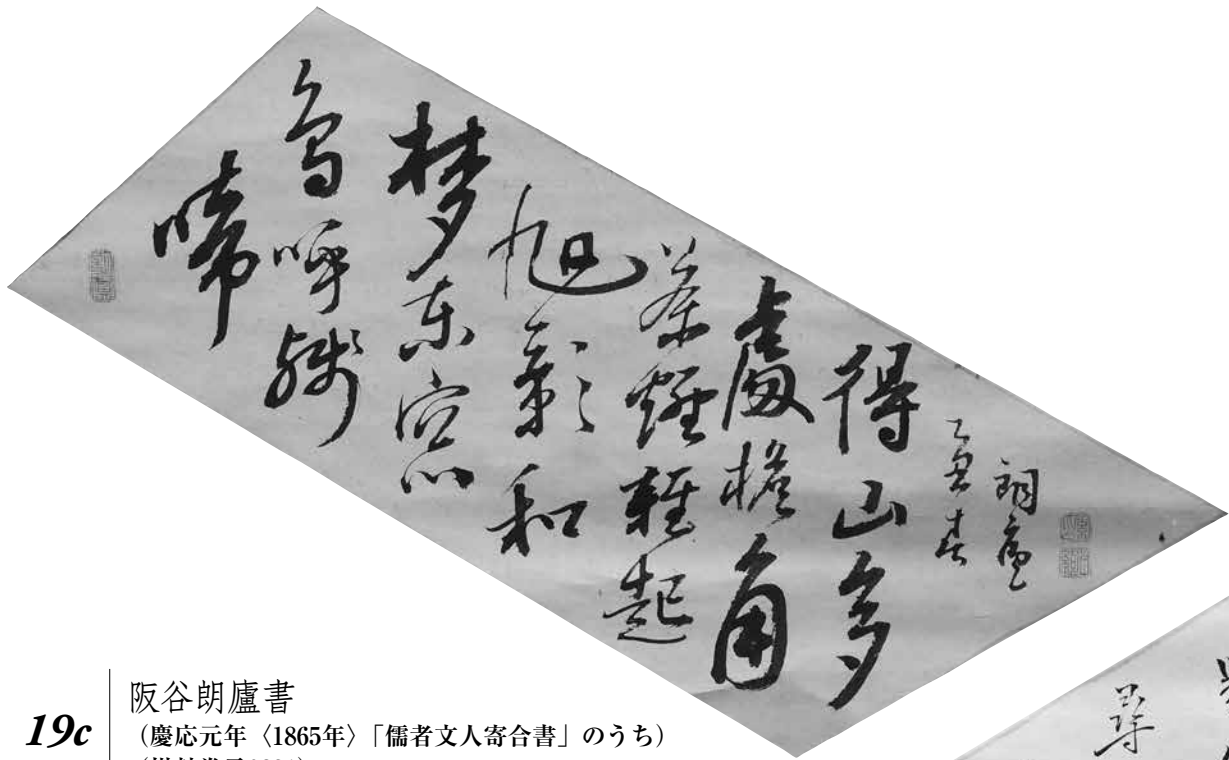 啼
鳥呼殘
梦東窓
旭影和
茶煙輕起
處檐角
得山多
乙丑春
朗廬
19c
阪谷朗廬書
(慶応元年〈1865年〉「儒者文人寄合書」のうち)